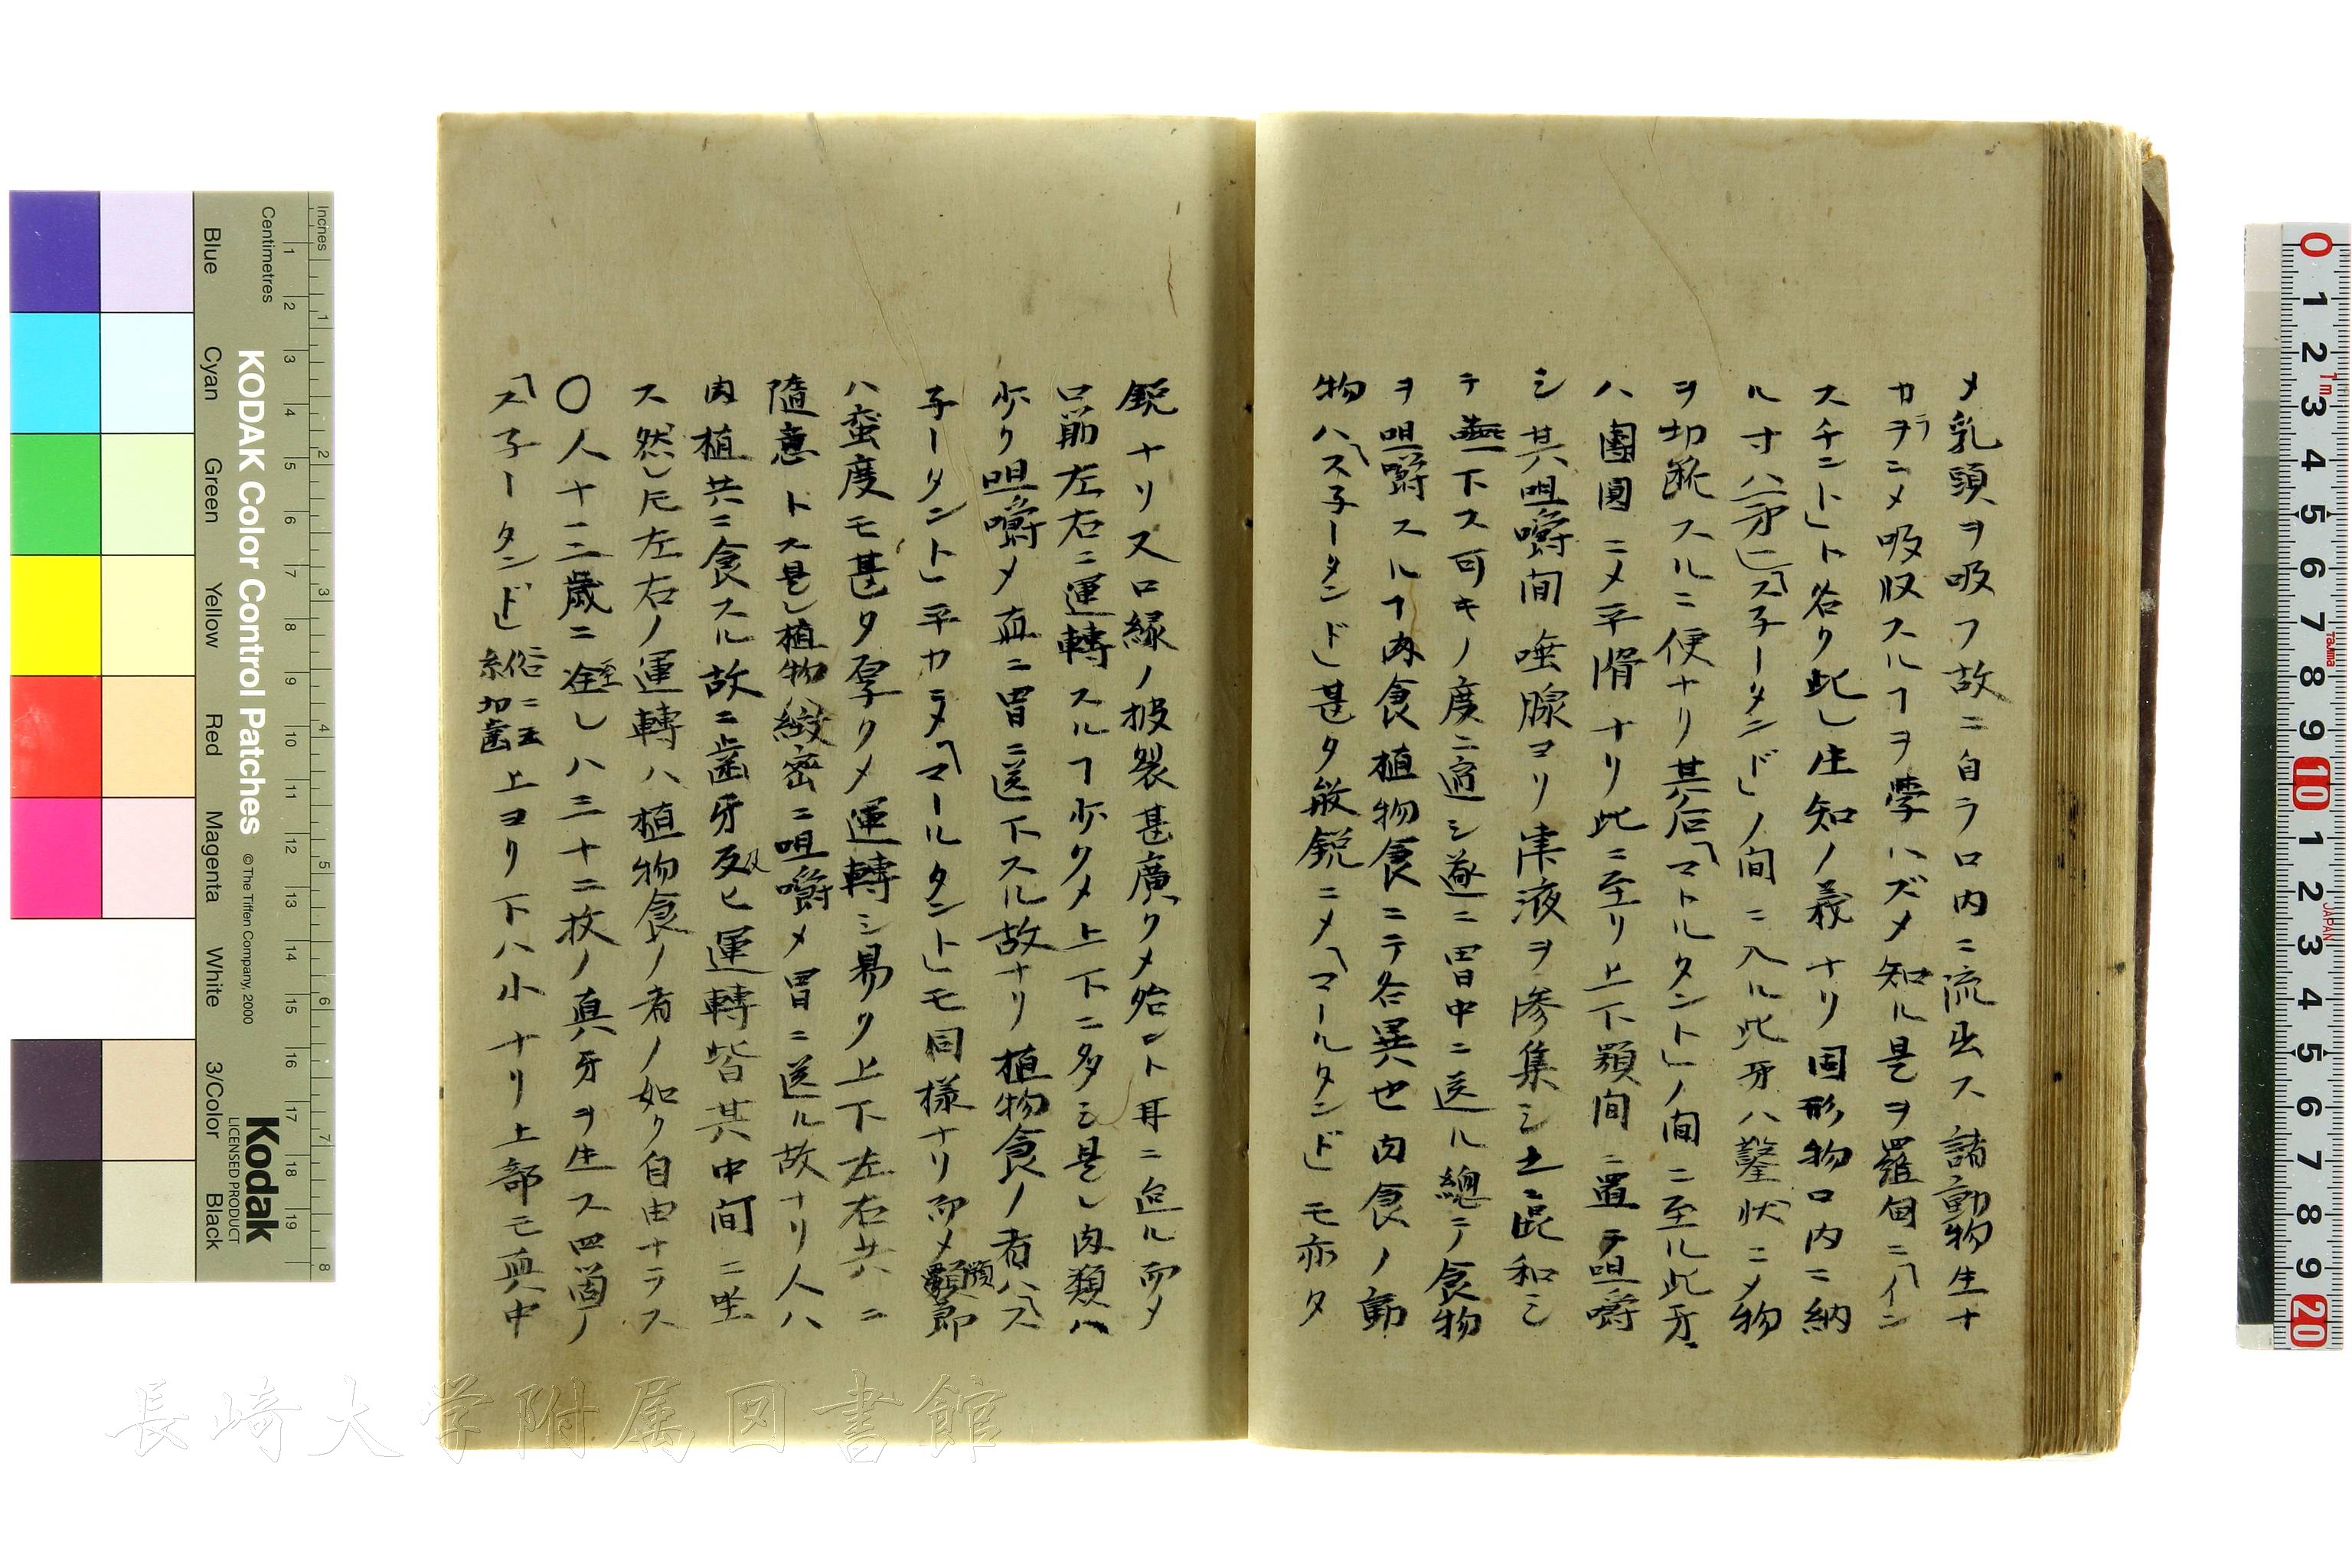 メ乳頭ヲ吸フ故ニ自ラ口内ニ流出ス諸動物生ナ
カラヲニメ吸収スルヿヲ學ハズメ知ル是ヲ羅甸ニ「イン
スチンﾄ」ト名ク此レ生知ノ義ナリ固形物口内ニ納
ル寸ハ第一「ス子ータンド」ノ間ニ入ル此牙ハ鑿状ニメ物
ヲ切断スルニ便ナリ其后「マールタント」ノ間ニ至ル此牙
ハ團圓ニメ平滑ナリ此ニ至リ上下顎間ニ置テ咀嚼
シ其咀嚼間唾腺ヨリ津液ヲ滲集シ土ニ混和シ
テ嚥下ス可キノ度ニ適シ遂ニ胃中ニ送ル總テ食物
ヲ咀嚼スルヿ肉食植物食ニテ各異也肉食ノ動
物ハ「ス子ータンド」甚タ敏鋭ニメ「マールタンド」モ亦タ
鋭ナリ又口縁ノ披裂甚廣クメ殆ント耳ニ迨ル而メ
口筋左右ニ運轉スルヿ少クメ上下ニ多シ是レ肉類ハ
少ク咀嚼メ直ニ胃ニ送下スル故ナリ植物食ノ者ハ「ス
子ータント」平カラメ「マールタント」モ同様ナリ而メ顎節
ハ蛮度モ甚タ厚クメ運轉シ易ク上下左右共ニ
隨意トス是レ植物緻密ニ咀嚼メ胃ニ送ル故ナリ人ハ
肉植共ニ食スル故ニ歯牙及ヒ運轉皆其中間ニ坐
ス然レ𪜈左右ノ運轉ハ植物食ノ者ノ如ク自由ナラス
〇人十二三歳ニ至レハ三十二枚ノ真牙ヲ生ス四箇ノ
「ス子ータンド」俗ニ云糸切歯上ヨリ下ハ小ナリ上部モ真中
KODAK Color Control Patches
© The Tiffen Company, 2000
Kodak
LICENSED PRODUCT
Inches
Centimetres
Blue
Cyan
Green
Yellow
Red
Magenta
White
3/Color
Black
長崎大学附属図書館